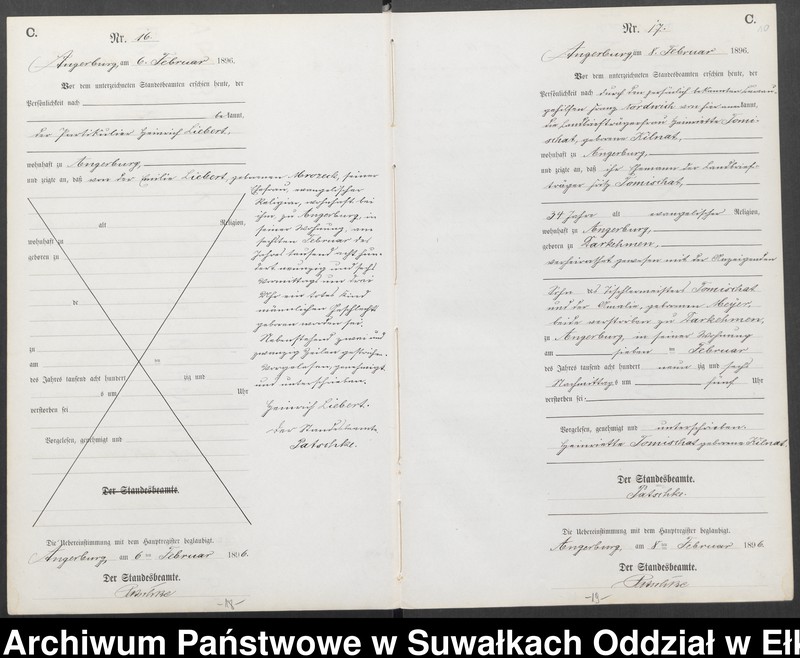 C.
Nr. 16.
Angerburg, am 6. Februar 1896.
Vor dem unterzeichneten Standesbeamten erschien heute, der
Persönlichkeit nach
bekannt,
der Partikulier Heinrich Liebert,
wohnhaft zu Angerburg,
und zeigte an, daß von der Emilie Liebert, geborenen Mrozeck, seiner
Ehefrau, evangelischer
Religion, wohnhaft bei
ihm zu Angerburg, in
seiner Wohnung, am
sechsten Februar des
Jahres tausend acht hun-
dert neunzig und sechs
Vormittags um drei
Uhr ein totes Kind
männlichen Geschlechts
geboren worden sei.
Nebenstehend zwei und
zwanzig Zeilen gestrichen.
Vorgelesen, genehmigt
und unterschrieben.
Heinrich Liebert.
Der Standesbeamte
Patschke.
alt Religion,
wohnhaft zu
geboren zu
de
zu
am ten
des Jahres tausend acht hundert zig und
s um Uhr
verstorben sei
Vorgelesen, genehmigt und
Der Standesbeamte.
Die Uebereinstimmung mit dem Hauptregister beglaubigt.
Angerburg, am 6ten Februar 1896.
Der Standesbeamte.
Patschke
-18-
C.
Nr. 17.
Angerburg, am 8. Februar 1896.
Vor dem unterzeichneten Standesbeamten erschien heute, der
Persönlichkeit nach durch den persönlich bekannten
gehilfen Franz von hier anerkannt,
die Landbriefträgerfrau Henriette Tomi-
schat, geborene Kilnat,
wohnhaft zu Angerburg,
und zeigte an, daß ihr Ehemann der Landbrief-
träger Tomischat,
34 Jahre alt evangelischer Religion,
wohnhaft zu Angerburg,
geboren zu Darkehmen,
verheirathet gewesen mit der Anzeigenden
Sohn des Tischlermeisters Tomischat
und der Amalie, geborenen Meyer,
beide verstorben zu Darkehmen,
zu Angerburg, in seiner Wohnung
am sieben ten Februar
des Jahres tausend acht hundert neun zig und sechs
Nachmittags um fünf Uhr
verstorben sei.
Vorgelesen, genehmigt und unterschrieben.
Henriette Tomischat geborene Kilnat.
Der Standesbeamte.
Patschke.
Die Uebereinstimmung mit dem Hauptregister beglaubigt.
Angerburg, am 8ten Februar 1896.
Der Standesbeamte.
Patschke
-19-
Archiwum Państwowe w Suwałkach Oddział w Ełk